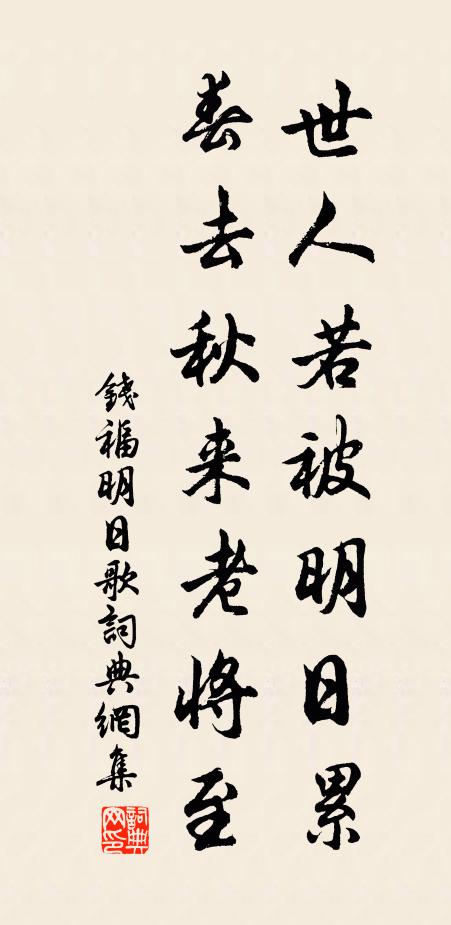 世人若被明日累
春去秋来老將至
錢福明日歌詞典網集
詞典網印